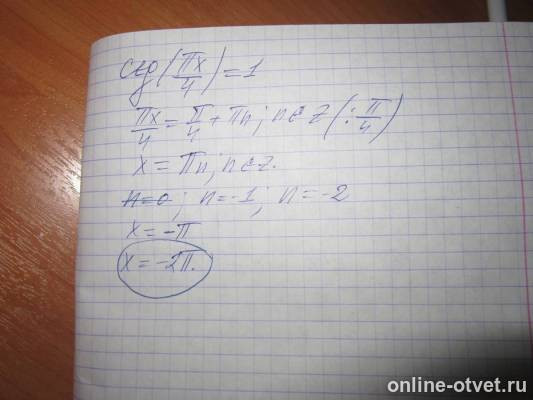 ctg(πx/4)=1
πx/4 = π/4 + πn; n∈Z (: π/4)
x = πn; n∈Z.
n=0; n=-1; n=-2
x = -π
x = -2π.
online-otvet.ru